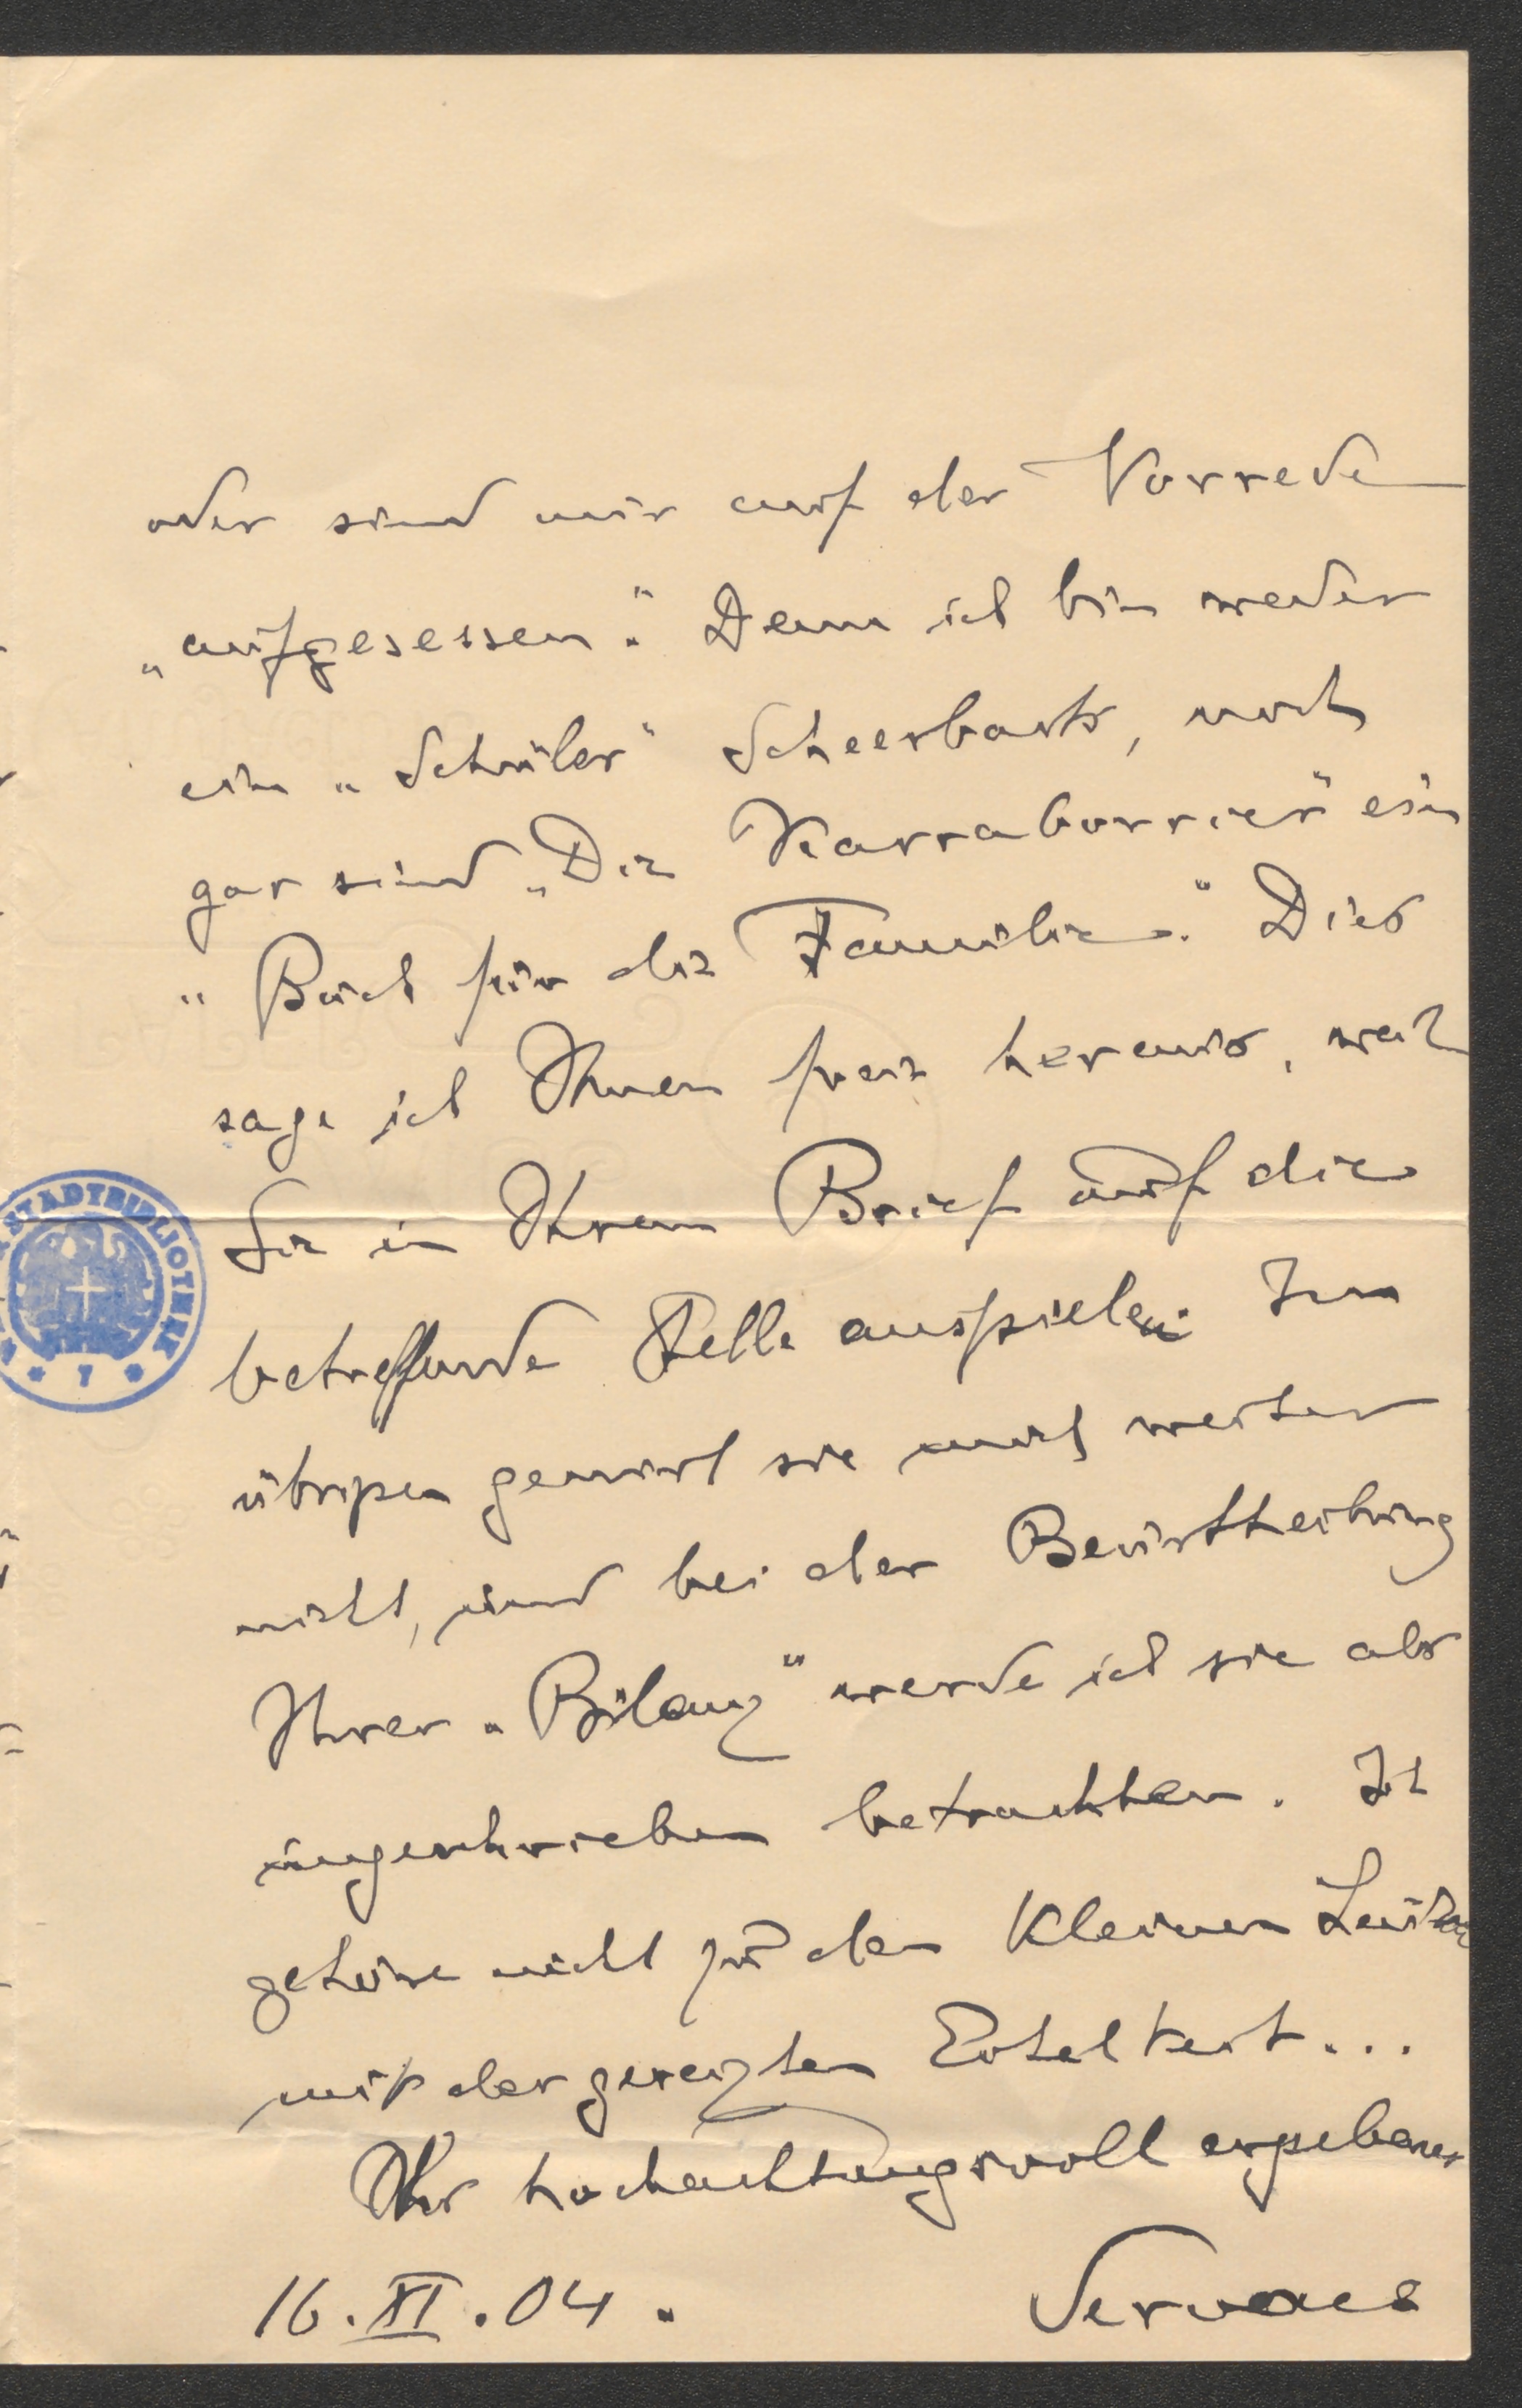 oder sind mir auf der Vorrede
„aufgesessen“. Denn ich bin weder
ein „Schüler“ Scheerbarts, noch
gar sind „Die Karraborrier“ ein
„Buch für die Familie“. Dies
sage ich Ihnen frei heraus, weil
Sie in Ihrem Brief auf die
STADTBIBLIOTHEK
* 7 *
betreffende Stelle anspielen. Im
übrigen geniert sie mich weiter
nicht, und bei der Beurtheilung
Ihrer „Bilanz“ werde ich sie als
ungeschrieben betrachten. Ich
gehöre nicht zu den kleinen Leuten
mit der gereizten Eitelkeit...
Ihr hochachtungsvoll ergebener
16.XI.04. Servaes